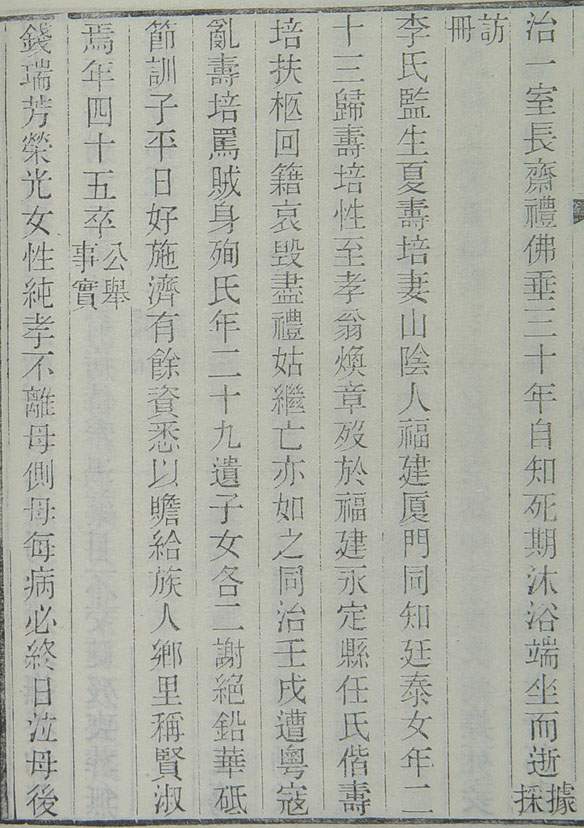 治一室長齋禮佛垂三十年自知死期沐浴端坐而逝據採
訪冊
李氏監生夏壽培妻山陰人福建厦門同知廷泰女年二
十三歸壽培性至孝翁煥章歿於福建永定縣任氏偕壽
培扶柩回籍哀毀盡禮姑繼亡亦如之同治壬戌遭粵寇
亂壽培罵賊身殉氏年二十九遺子女各二謝絕鉛華砥
節訓子平日好施濟有餘資悉以贍給族人鄉里稱賢淑
焉年四十五卒公舉事實
錢瑞芳榮光女性純孝不離母側母每病必終日泣母後